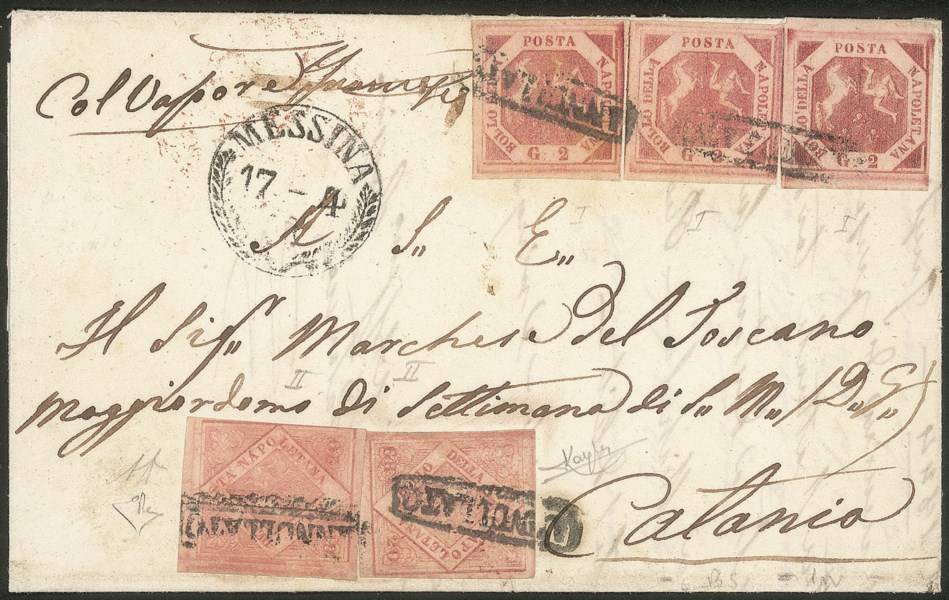 Col Vapore
MESSINA
17 - 4
POSTA NAPOLETANA
BOLLO DELLA
G. 2
POSTA NAPOLETANA
BOLLO DELLA
G. 2
POSTA NAPOLETANA
BOLLO DELLA
G. 2
ANNULLATO
I I I
A S„ E„
Il Sig„ Marchese Del Toscano
II II
Maggiordomo di Settimana di S„ M„ (D„ G„)
POSTA NAPOLETANA
ANNULLATO
DELLA
NAPOLETANA
ANNULLATO
Catania